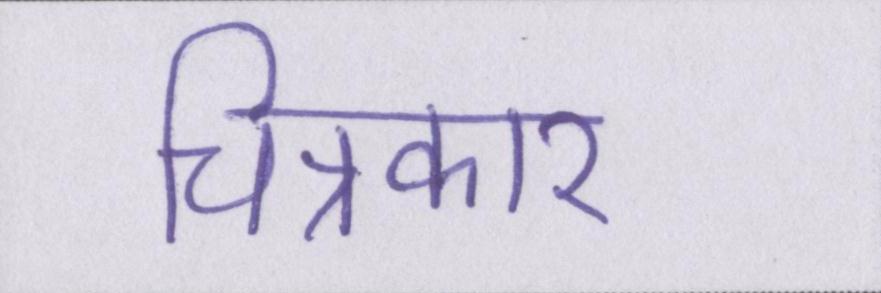 चित्रकार